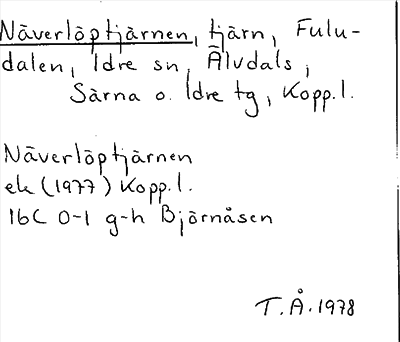 Näverlöptjärnen, tjärn, Fulu-
dalen, Idre sn, Älvdals,
Särna o. Idre tg, Kopp.l.
Näverlöptjärnen
ek (1977) Kopp.l.
16C 0-1 g-h Björnåsen
T.Å. 1978